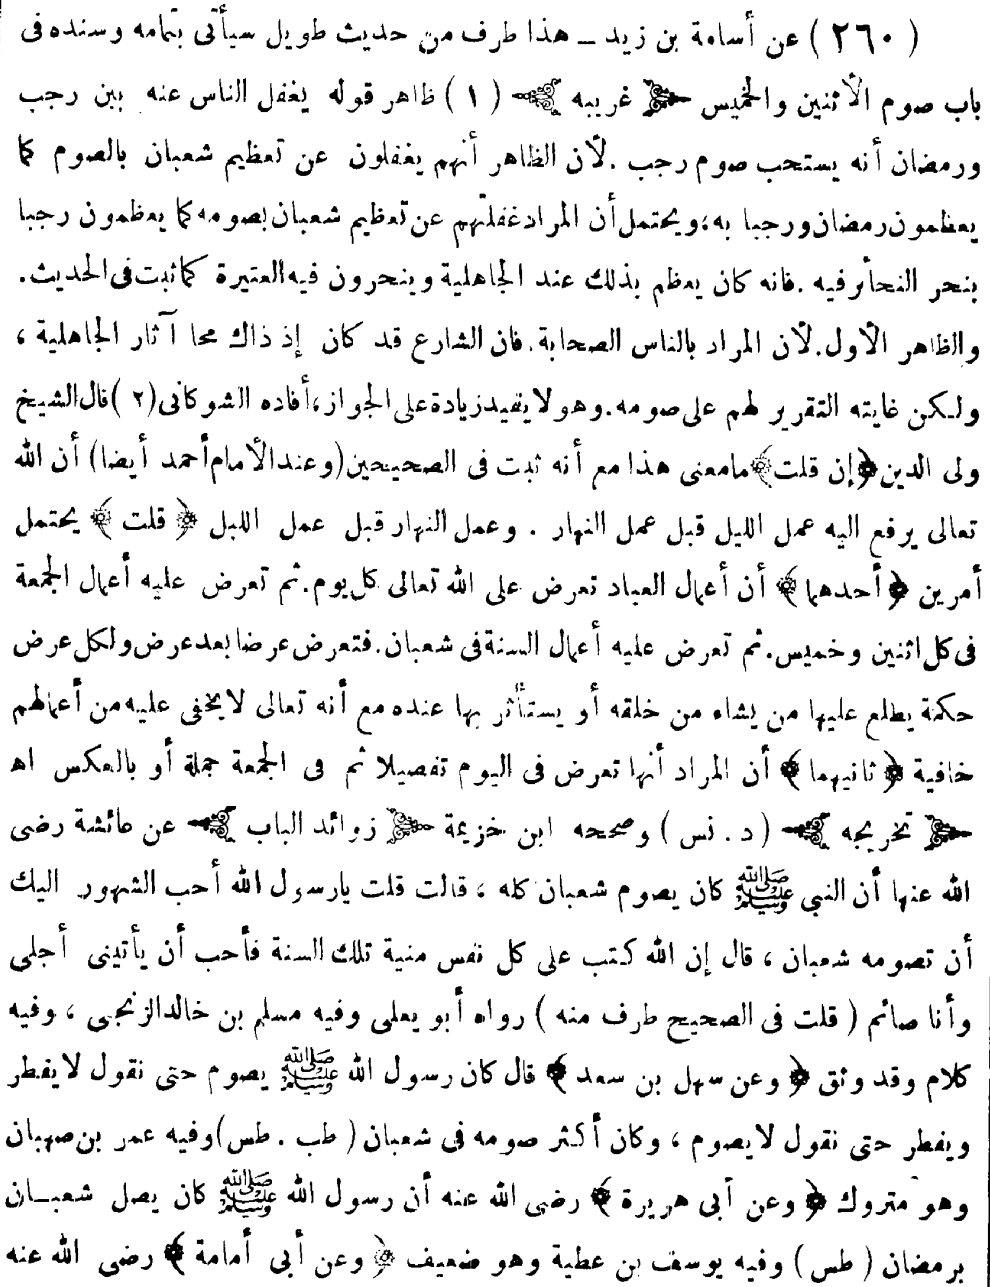 ( ٢٦٠ ) عن أسامة بن زيد ــ هذا طرف من حديث طويل سيأتى بتمامه وسنده فى
باب صوم الأثنين والخميس ﴿ غريبه ﴾ ( ١ ) ظاهر قوله يغفل الناس عنه بين رجب
ورمضان أنه يستحب صوم رجب . لأن الظاهر أنهم يغفلون عن تعظيم شعبان بالصوم كما
يعظمون رمضان ورجبا به ، ويحتمل أن المراد غفلتهم عن تعظيم شعبان بصومه كما يعظمون رجبا
بنحر النحائر فيه . فانه كان يعظم بذلك عند الجاهلية وينحرون فيه العتيرة كما ثبت فى الحديث .
والظاهر الأول . لأن المراد بالناس الصحابة . فان الشارع قد كان إذ ذاك محا آثار الجاهلية ،
ولكن غايته التقرير لهم على صومه . وهو لا يفيد زيادة على الجواز ، أفاده الشوكانى ( ٢ ) قال الشيخ
ولى الدين ﴿ إن قلت ﴾ ما معنى هذا مع أنه ثبت فى الصحيحين ( وعند الأمام أحمد أيضا ) أن الله
تعالى يرفع اليه عمل الليل قبل عمل النهار . وعمل النهار قبل عمل الليل ﴿ قلت ﴾ يحتمل
أمرين ﴿ أحدهما ﴾ أن أعمال العباد تعرض على الله تعالى كل يوم . ثم تعرض عليه أعمال الجمعة
فى كل اثنين وخميس . ثم تعرض عليه أعمال السنة فى شعبان . فتعرض عرضا بعد عرض ولكل عرض
حكمة يطلع عليها من يشاء من خلقه أو يستأثر بها عنده مع أنه تعالى لا يخفى عليه من أعمالهم
خافية ﴿ ثانيهما ﴾ أن المراد أنها تعرض فى اليوم تفصيلا ثم فى الجمعة جملة أو بالعكس اه
﴿ تخريجه ﴾ ( د . نس ) وصححه ابن خزيمة ﴿ زوائد الباب ﴾ عن عائشة رضى
الله عنها أن النبي ﷺ كان يصوم شعبان كله ، قالت قلت يارسول الله أحب الشهور اليك
أن تصومه شعبان ، قال إن الله كتب على كل نفس منية تلك السنة فأحب أن يأتينى أجلى
وأنا صائم ( قلت فى الصحيح طرف منه ) رواه أبو يعلى وفيه مسلم بن خالد الزنجى ، وفيه
كلام وقد وثق ﴿ وعن سهل بن سعد ﴾ قال كان رسول الله ﷺ يصوم حتى نقول لا يفطر
ويفطر حتى نقول لا يصوم ، وكان أكثر صومه فى شعبان ( طب . طس ) وفيه عمر بن صهبان
وهو متروك ﴿ وعن أبى هريرة ﴾ رضى الله عنه أن رسول الله ﷺ كان يصل شعبـان
برمضان ( طس ) وفيه يوسف بن عطية وهو ضعيف ﴿ وعن أبى أمامة ﴾ رضى الله عنه